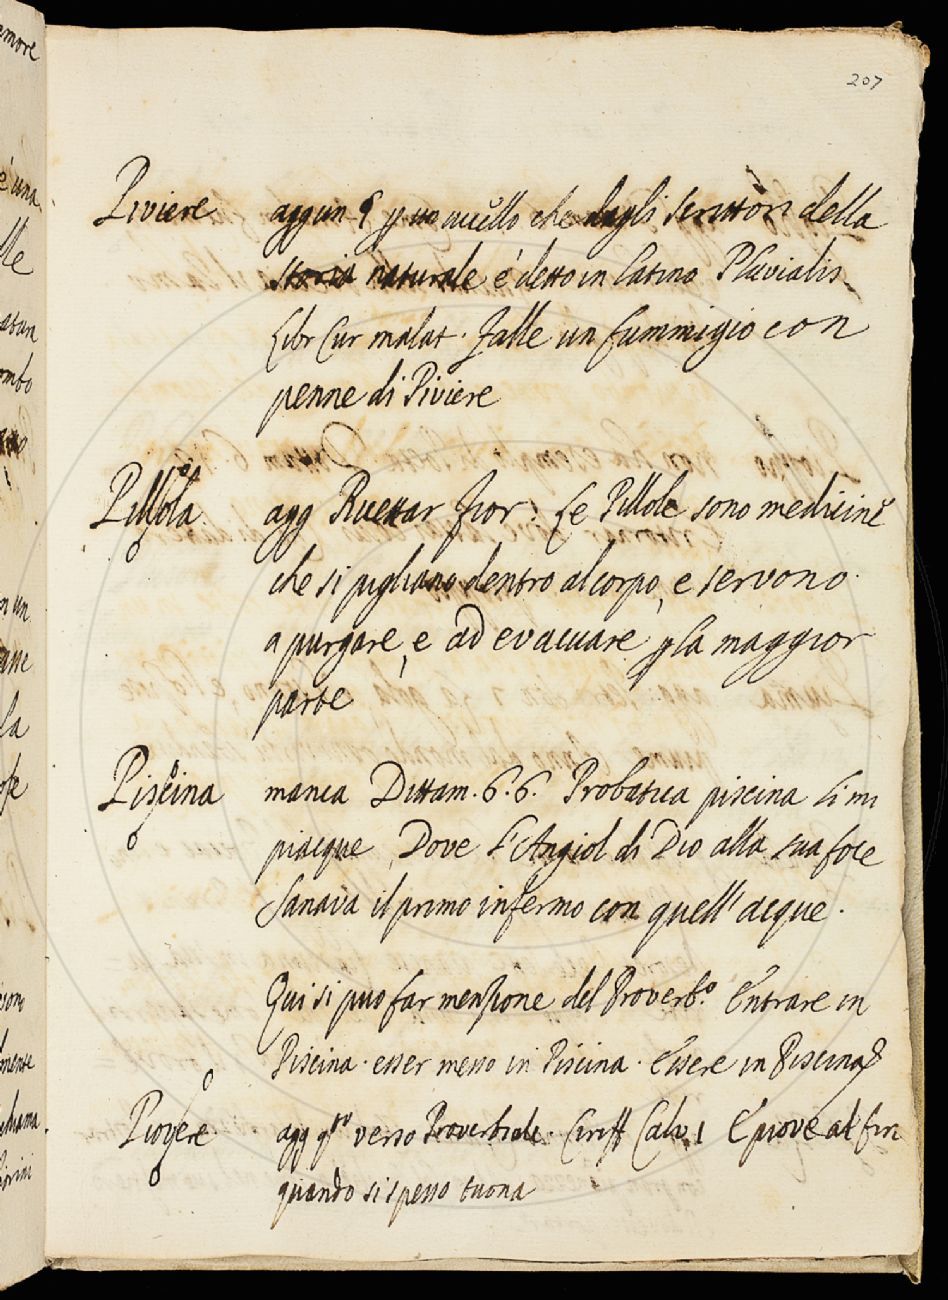 207
Piviere aggiun q p uo uccello che dagli scrittori della
storia naturale é detto in latino Pluvialis
Libr Cur malat. Falle un fummigio con
penne di Piviere
Pillola agg Ricettar fior: Le Pillole sono medicine
che si pigliano dentro al corpo, e servono
a purgare, e ad evacuare p la maggior
parte
Piscina manca Dittam. 6. 6. Probatica piscina li mi
piacque Dove l'Angiol di Dio alla sua foce
Sanava il primo infermo con quell'acque.
Qui si puo far menzione del Proverb.o Entrare in
Piscina. esser messo in Piscina. Essere in Piscina
Piovere agg q.to verso Proverbiale. Ciriff Calv. 1 E piove al fin
quando si spesso tuona
amore
é una
lle
ombo
n un
la
mente